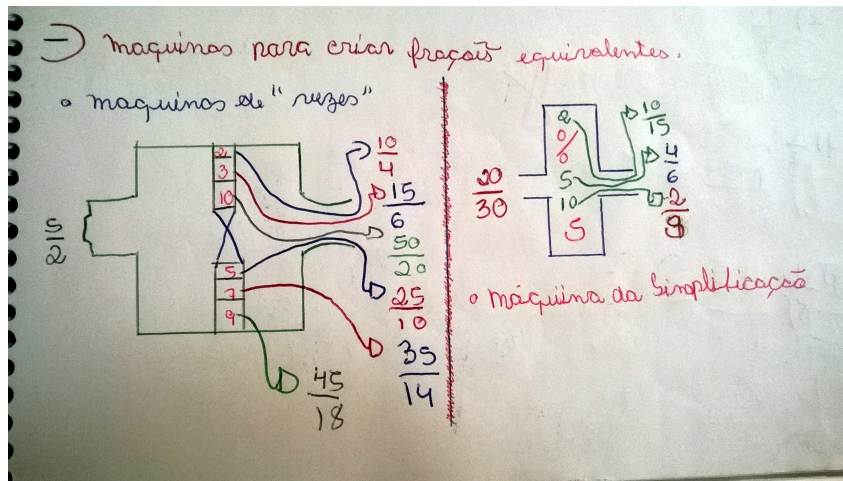 maquinas para criar fraçoẽs equivalentes.
maquinas de "vezes"
5/2
2
3
10
5
7
9
10/4
15/6
50/20
25/10
35/14
45/18
20/30
2
%
5
10
5
10/15
4/6
2/3
máquina da Simplificação